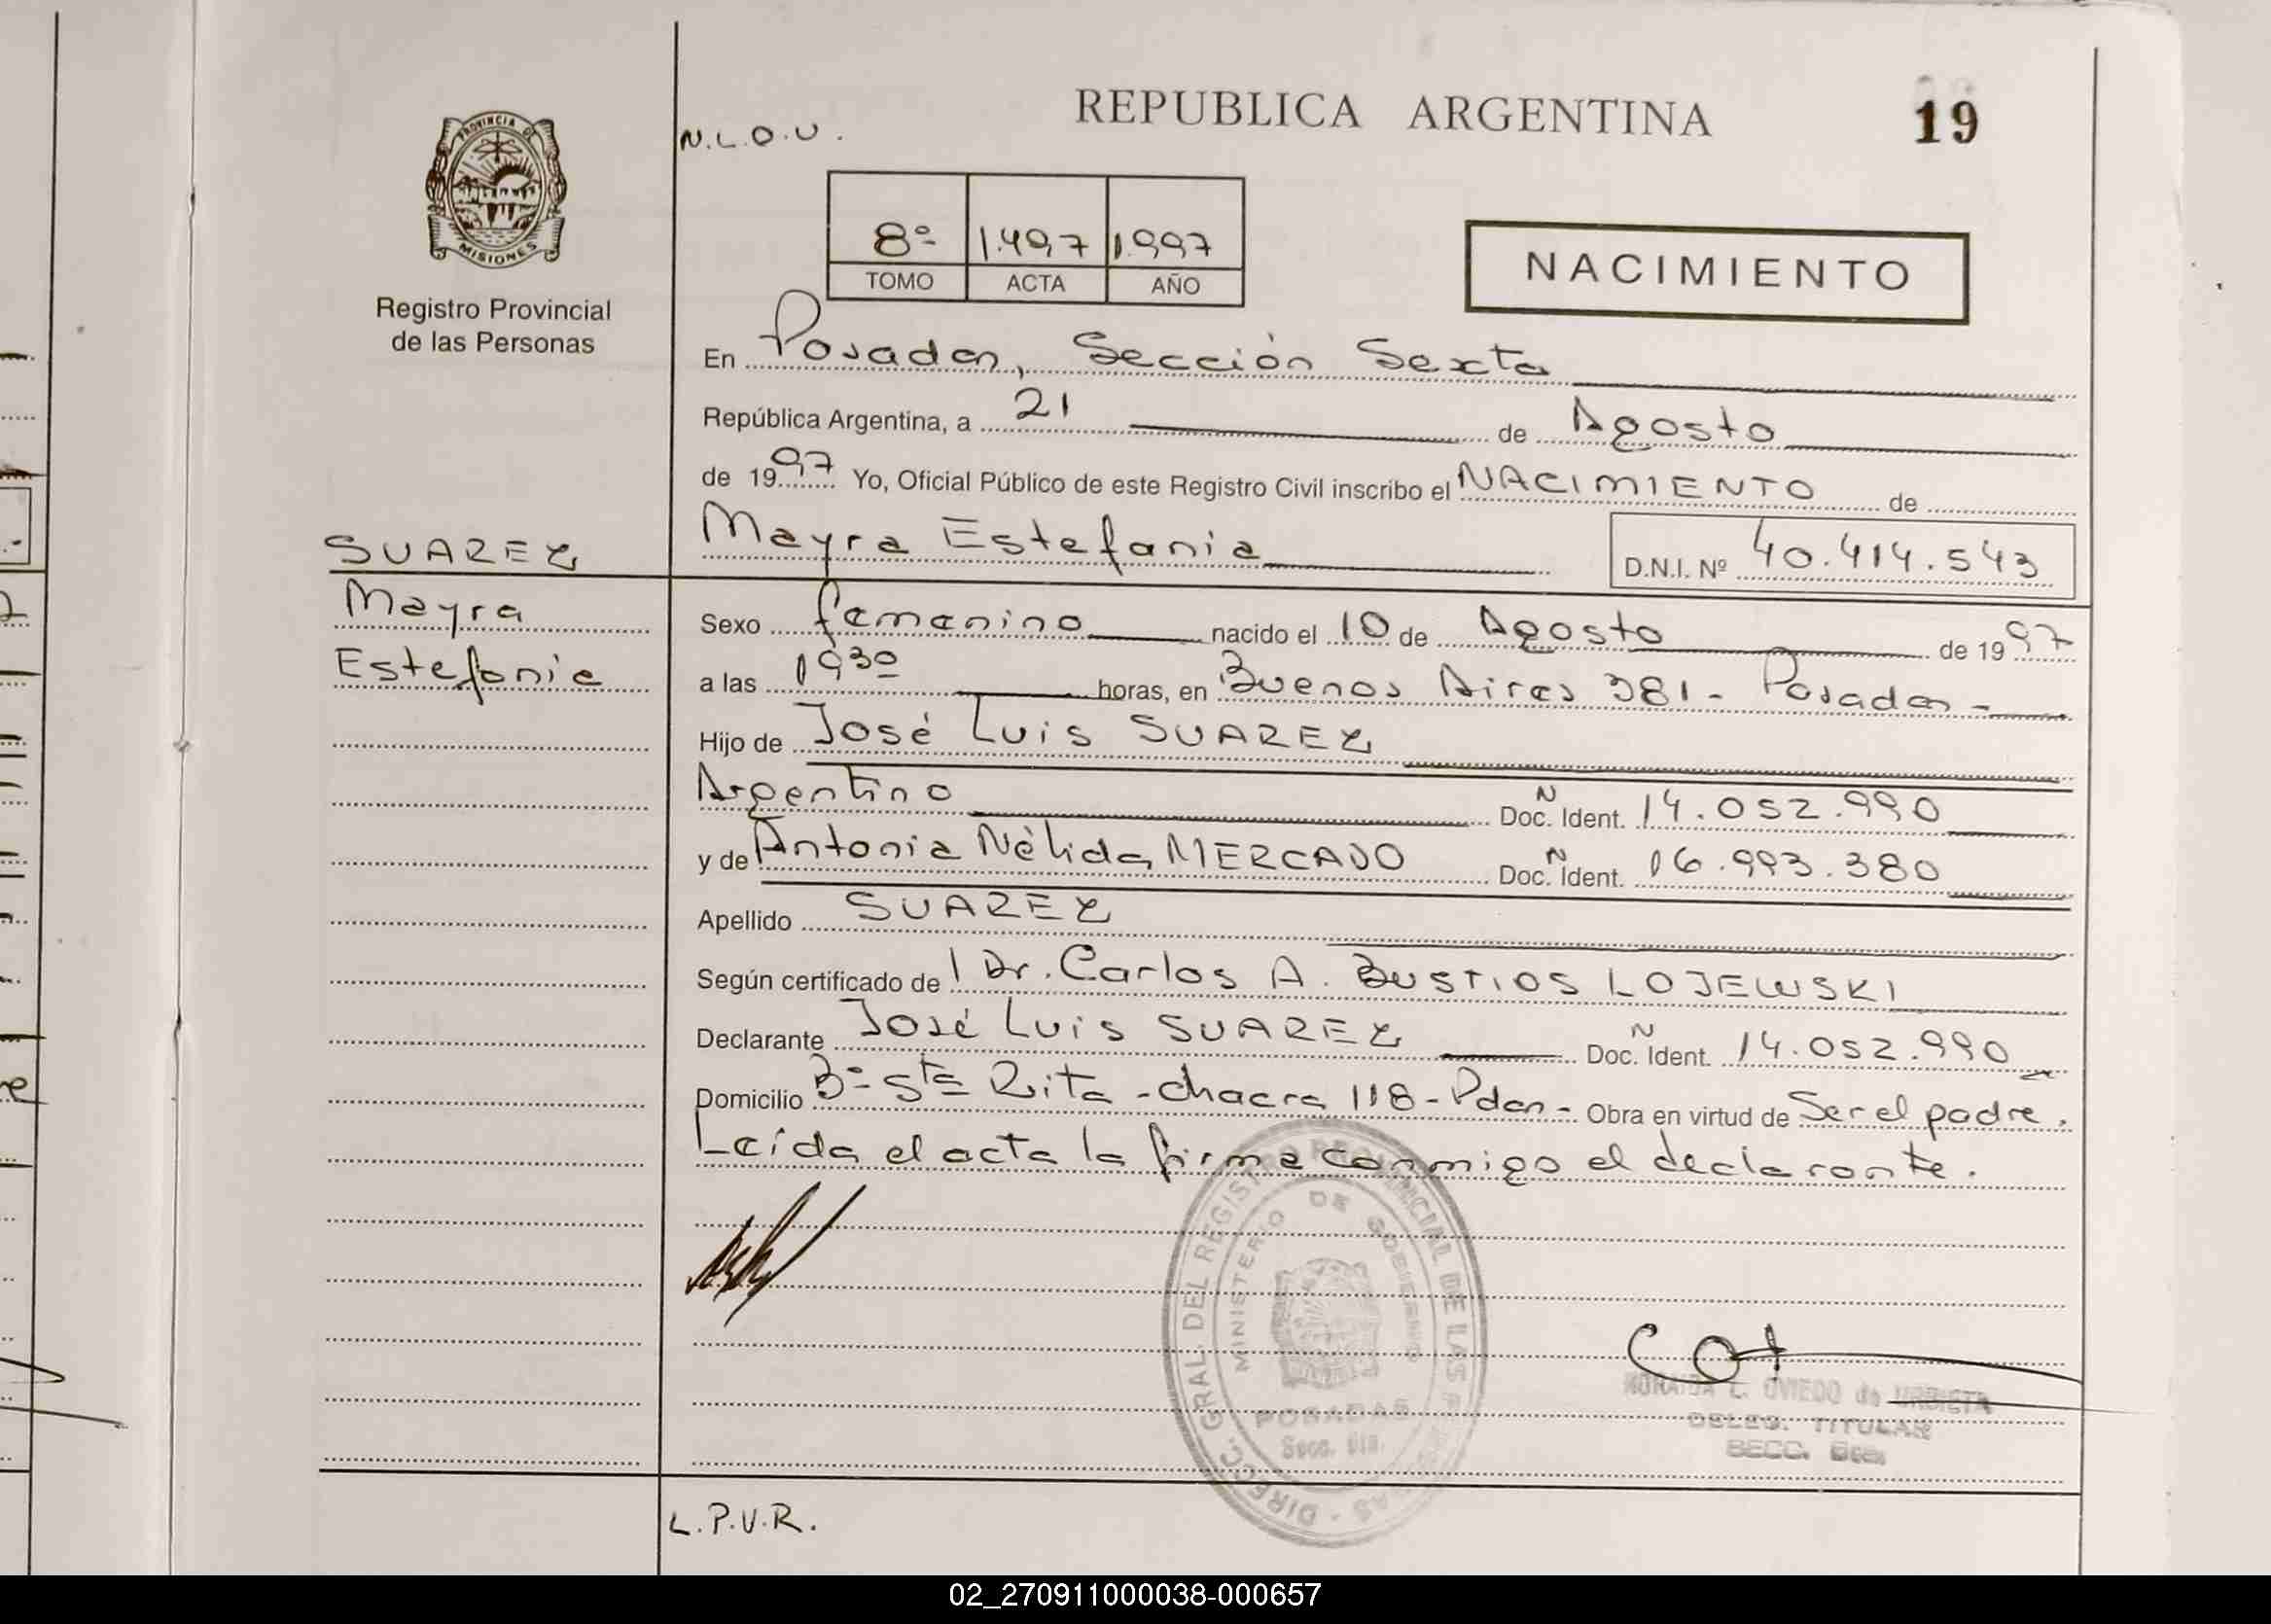 REPUBLICA ARGENTINA
19
N.L.O.U.
PROVINCIA DE
MISIONES
Registro Provincial
de las Personas
8º 1.497 1.997
TOMO ACTA AÑO
NACIMIENTO
En Posadas, Sección Sexta
República Argentina, a 21 de Agosto
de 1997 Yo, Oficial Público de este Registro Civil inscribo el NACIMIENTO de
SUAREZ
Mayra Estefania D.N.I. Nº 40.414.543
Mayra
Estefania
Sexo femenino nacido el 10 de Agosto de 1997
a las 1930 horas, en Buenos Aires 381 - Posadas -
Hijo de José Luis SUAREZ
Argentino Doc. Ident. N 14.052.990
y de Antonia Nélida MERCADO Doc. Ident. N 16.993.380
Apellido SUAREZ
Según certificado de l Dr. Carlos A. BUSTIOS LOJEWSKI
Declarante José Luis SUAREZ Doc. Ident. N 14.052.990
Domicilio Bº Sta Rita - chacra 118 - Pdas - Obra en virtud de Ser el padre.
Leída el acta la firma conmigo el declarante.
DIRECC. GRAL. DEL REGISTRO PROVINCIAL DE LAS
MINISTERIO DE GOBIERNO
POSADAS
Secc.
L. OVIEDO de URBIETA
DELEG. TITULAR
SECC.
L.P.V.R.
02_270911000038-000657